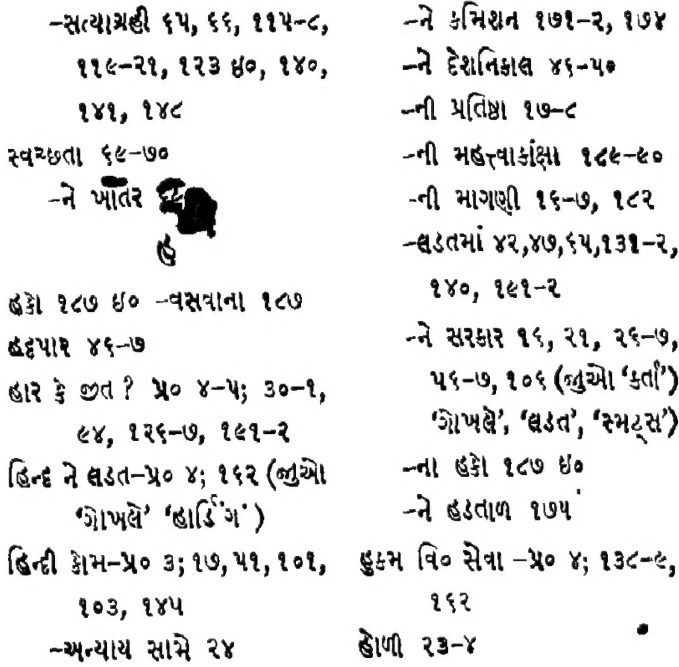 –સત્યાગ્રહી ૬૫, ૬૬, ૧૧૫–૮,
૧૧૯–૨૧, ૧૨૩ ઇ૦, ૧૪૦,
૧૪૧, ૧૪૮
સ્વચ્છતા ૬૯–૭૦
–ને ખાતર
હ
હકો ૧૮૭ ઇ૦ –વસવાના ૧૮૭
હદ્દપાર ૪૬–૭
હાર કે જીત? પ્ર૦ ૪–૫; ૩૦–૧,
૯૪, ૧૨૬–૭, ૧૯૧–૨
હિન્દ ને લડત–પ્ર૦ ૪; ૧૬૨ (જુઓ
‘ગોખલે’ ‘હાર્ડિંગ’)
હિન્દી કોમ–પ્ર૦ ૩; ૧૭, ૫૧, ૧૦૧,
૧૦૩, ૧૪૫
–અન્યાય સામે ૨૪
–ને કમિશન ૧૭૧–૨, ૧૭૪
–ને દેશનિકાલ ૪૬–૫૦
–ની પ્રતિષ્ઠા ૧૭–૮
–ની મહત્ત્વાકાંક્ષા ૧૮૯–૯૦
–ની માગણી ૧૬–૭, ૧૮૨
–લડતમાં ૪૨,૪૭,૬૫,૧૩૧–૨,
૧૪૦, ૧૯૧–૨
–ને સરકાર ૧૬, ૨૧, ૨૬–૭,
૫૬–૭, ૧૦૬ (જુઓ ‘કર્તા’)
‘ગોખલે’, ‘લડત’, ‘સ્મટ્સ’)
–ના હકો ૧૮૭ ઇ૦
–ને હડતાળ ૧૭૫
હુકમ વિ૦ સેવા –પ્ર૦ ૪; ૧૩૮–૯,
૧૬૨
હોળી ૨૩–૪